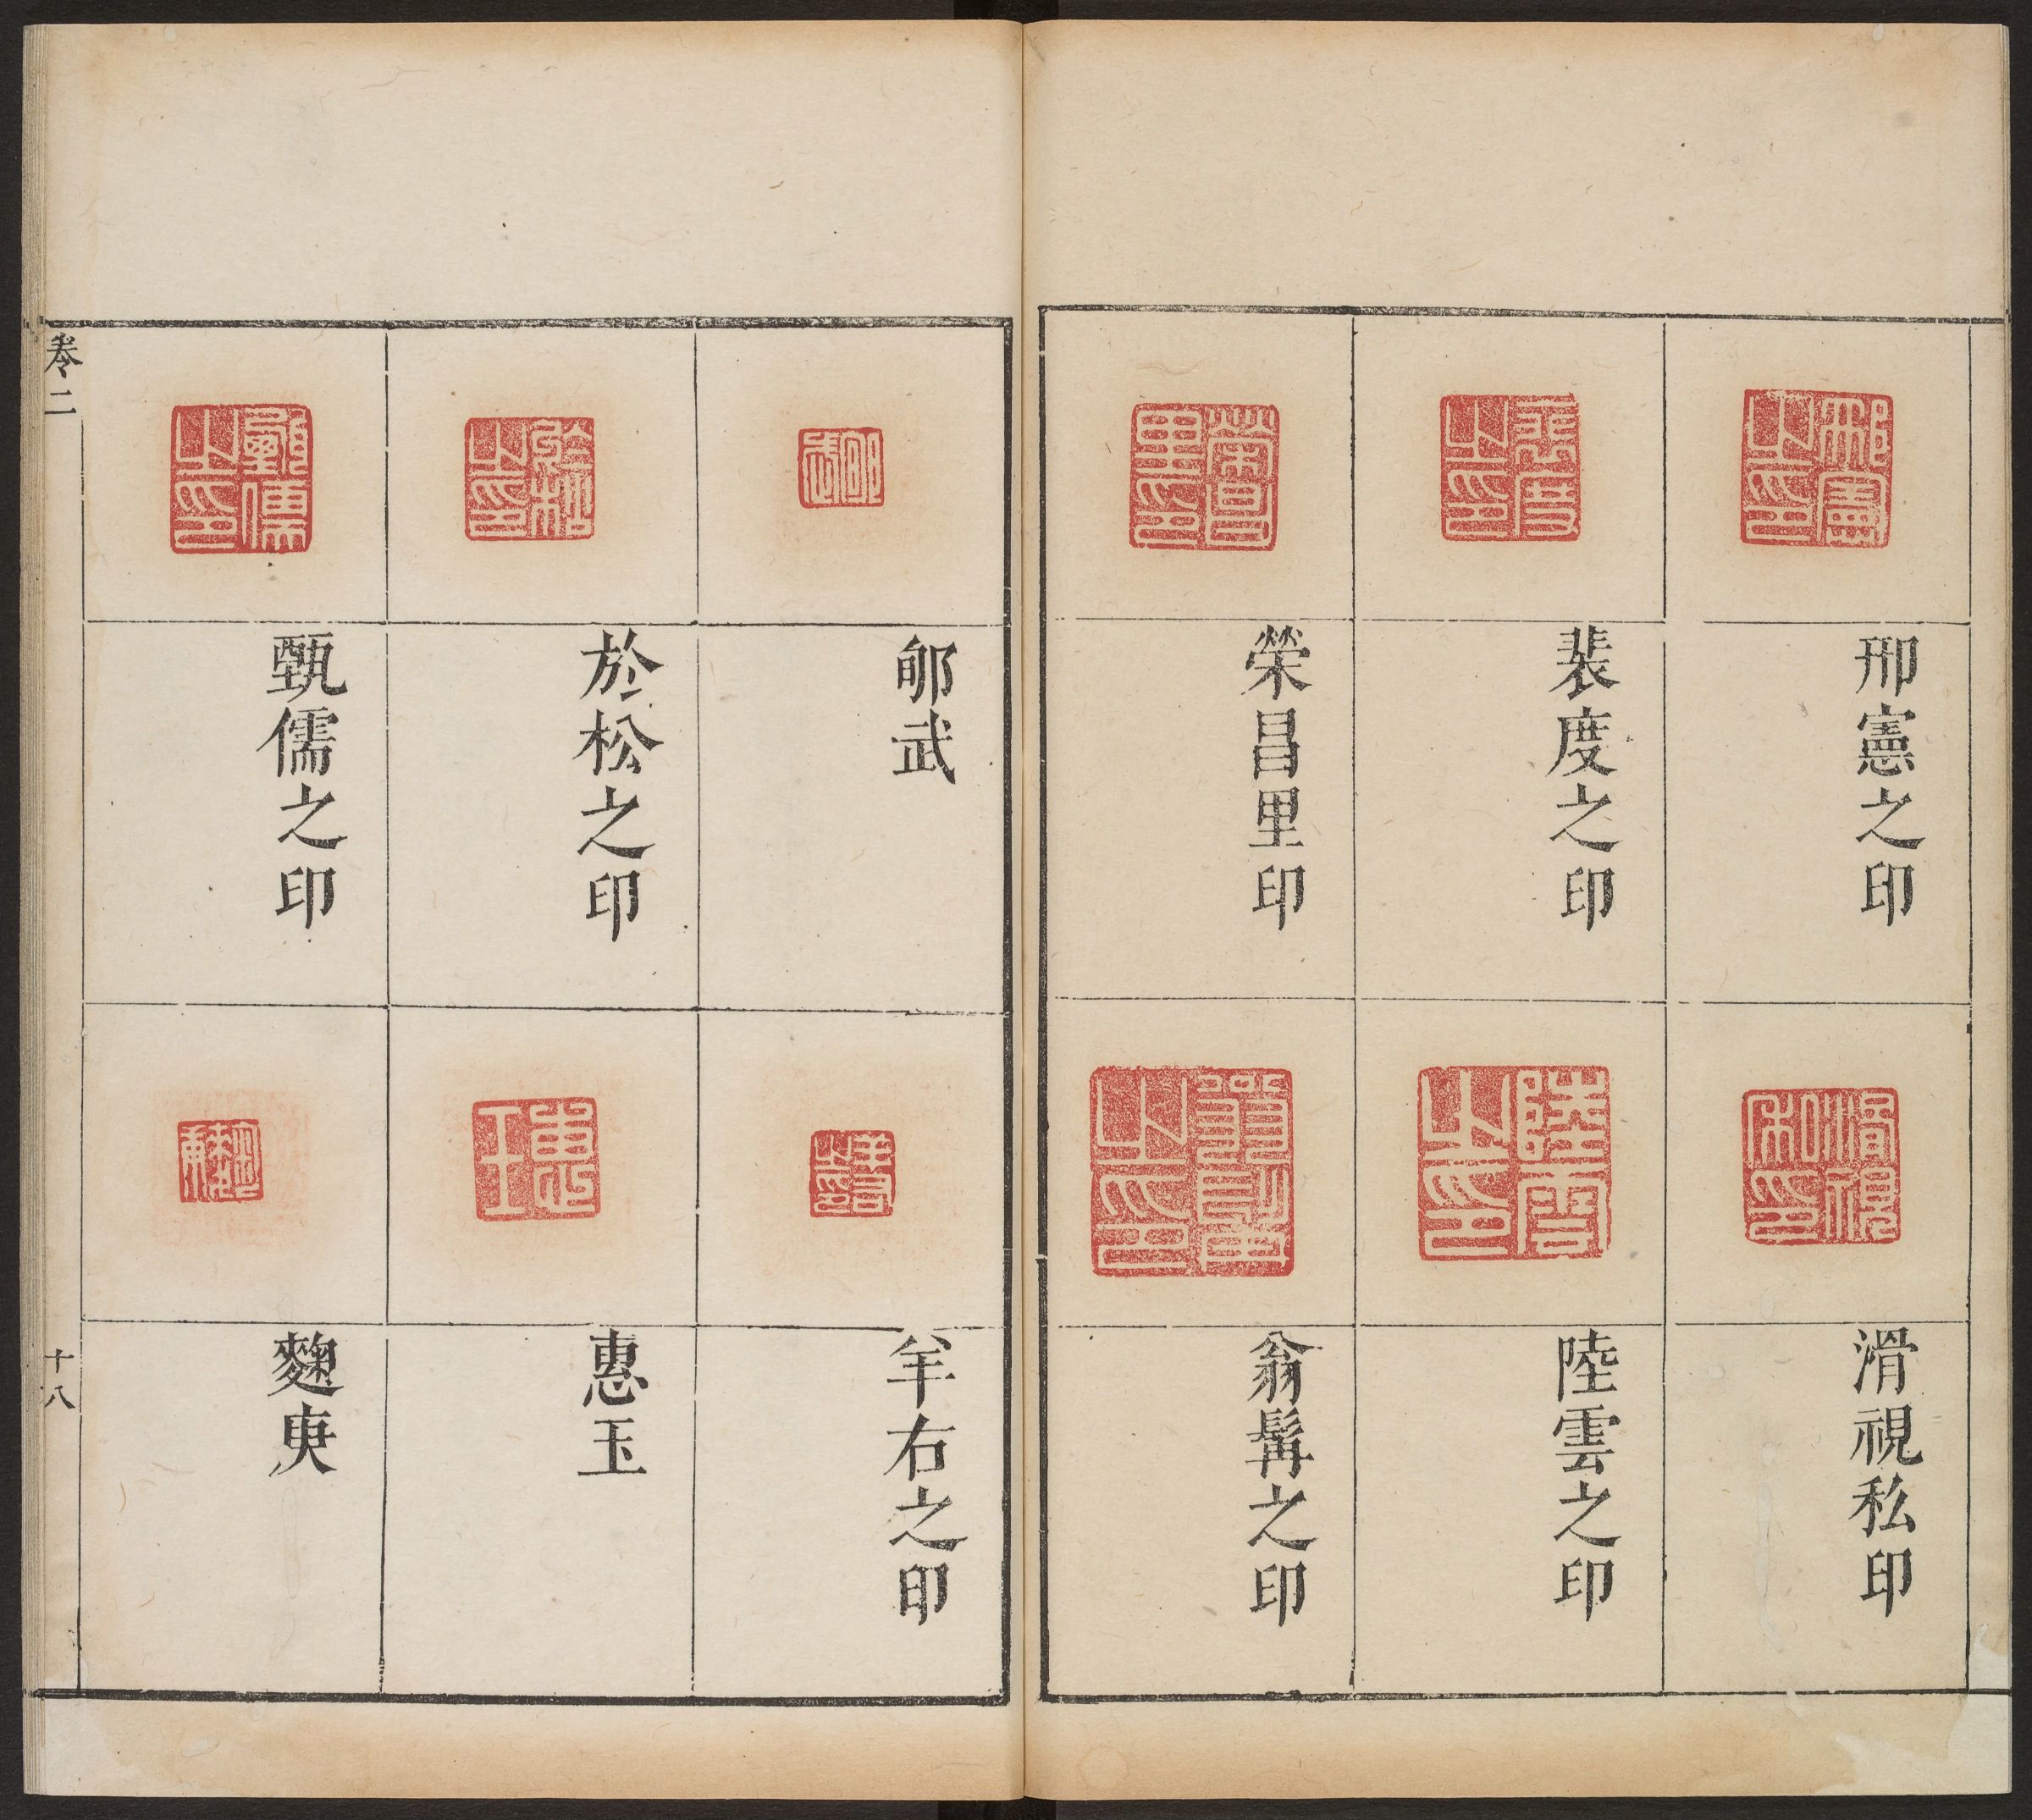 邢憲之印
裴度之印
榮昌里印
滑視私印
陸雲之印
翁髯之印
郇武
於松之印
甄儒之印
羊右之印
惠玉
麴庚
卷二
十八